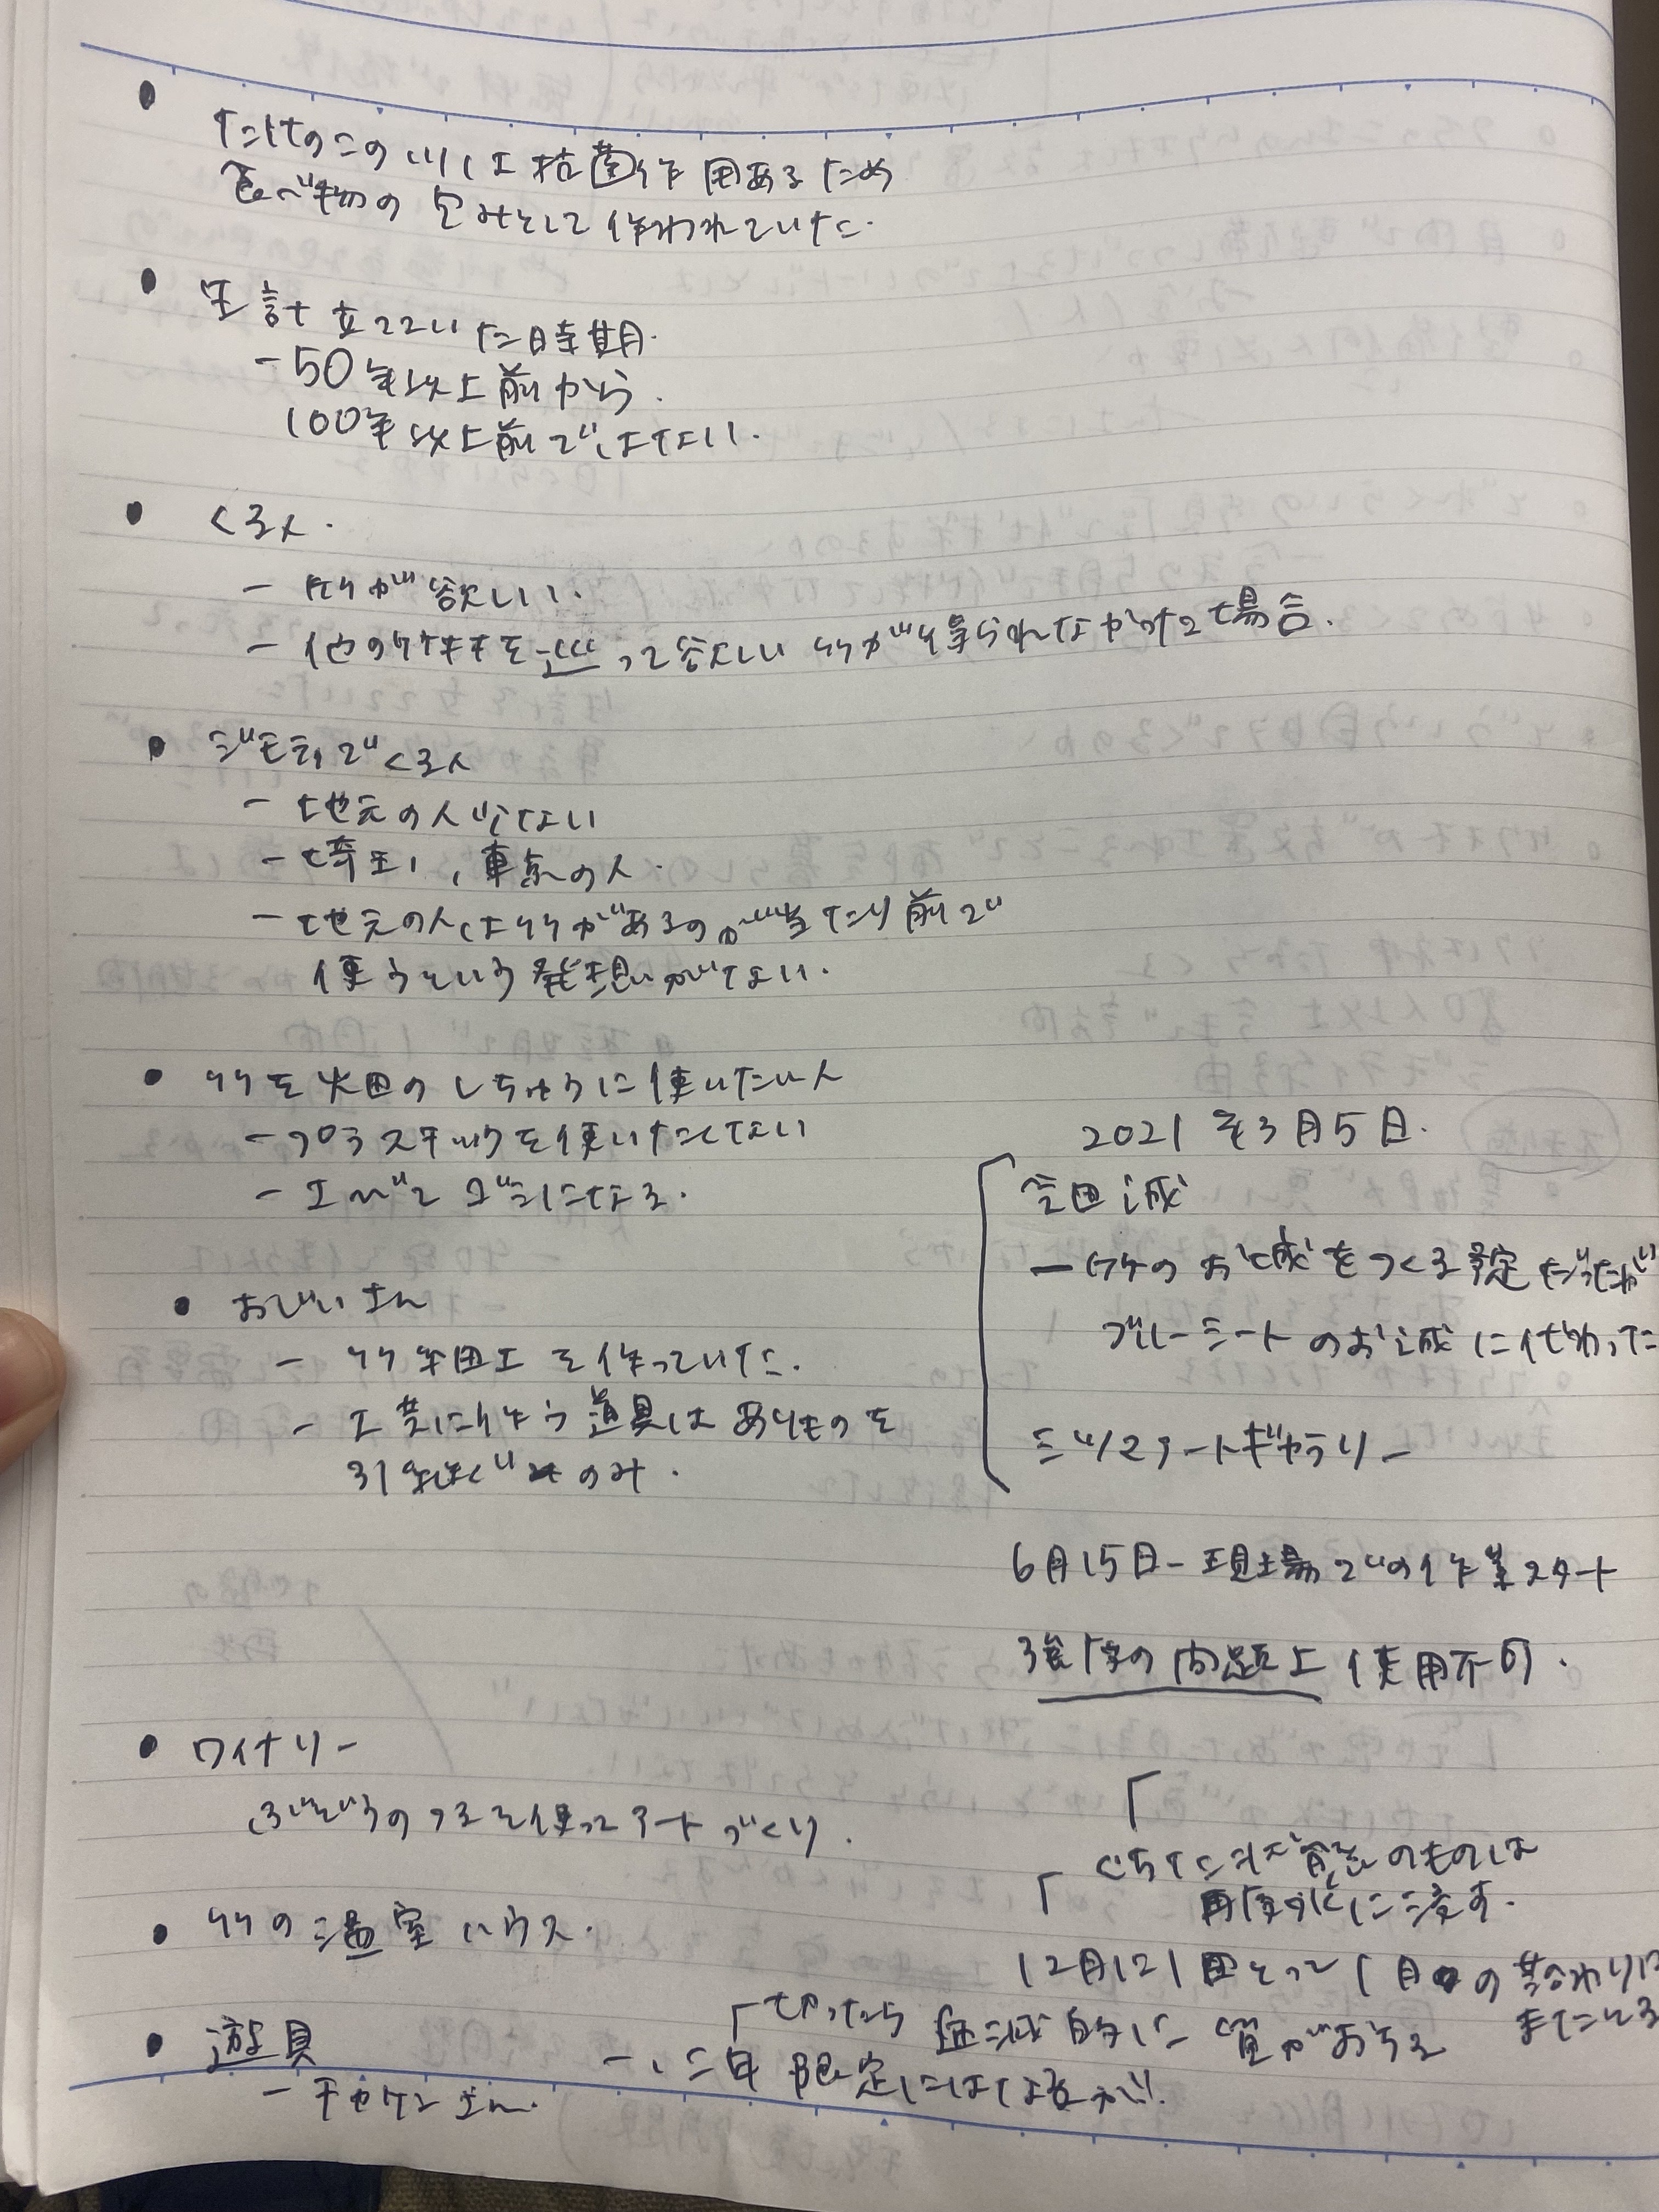 たけのこの川は抗菌作用あるため
食べ物の包みとして作われていた.
生計立てていた時期.
-50年以上前から.
100年以上前ではない.
くる人.
- 竹が欲しい.
- 他の竹林を巡って欲しい竹が得られなかった場合.
ジモティでくる人
- 地元の人少ない
- 埼玉, 東京の人.
- 地元の人は竹があるのが当たり前で
使うという発想がない.
竹を畑のしちゅうに使いたい人
- プラスチックを使いたくない
- エンビ ゴミになる.
おじいさん
- 竹細工を作っていた.
- 工芸に使う道具はありものを
引き継いだもののみ.
2021年3月5日.
会田誠
- 竹のお城をつくる予定だったが
ブルーシートのお城に代わった
ミヅマアートギャラリー
6月15日-現場での作業スタート
強度の問題上使用不可.
ワイナリー
ぶどうのつるを使ってアートづくり.
竹の温室ハウス.
遊具
- チカケンさん.
くちた状態のものは
再度炭に戻す.
12月に1回とって1月の終わりに
またとる
切ったら 壊滅的に 質がおちる
- 、二年限定にはなるが!!